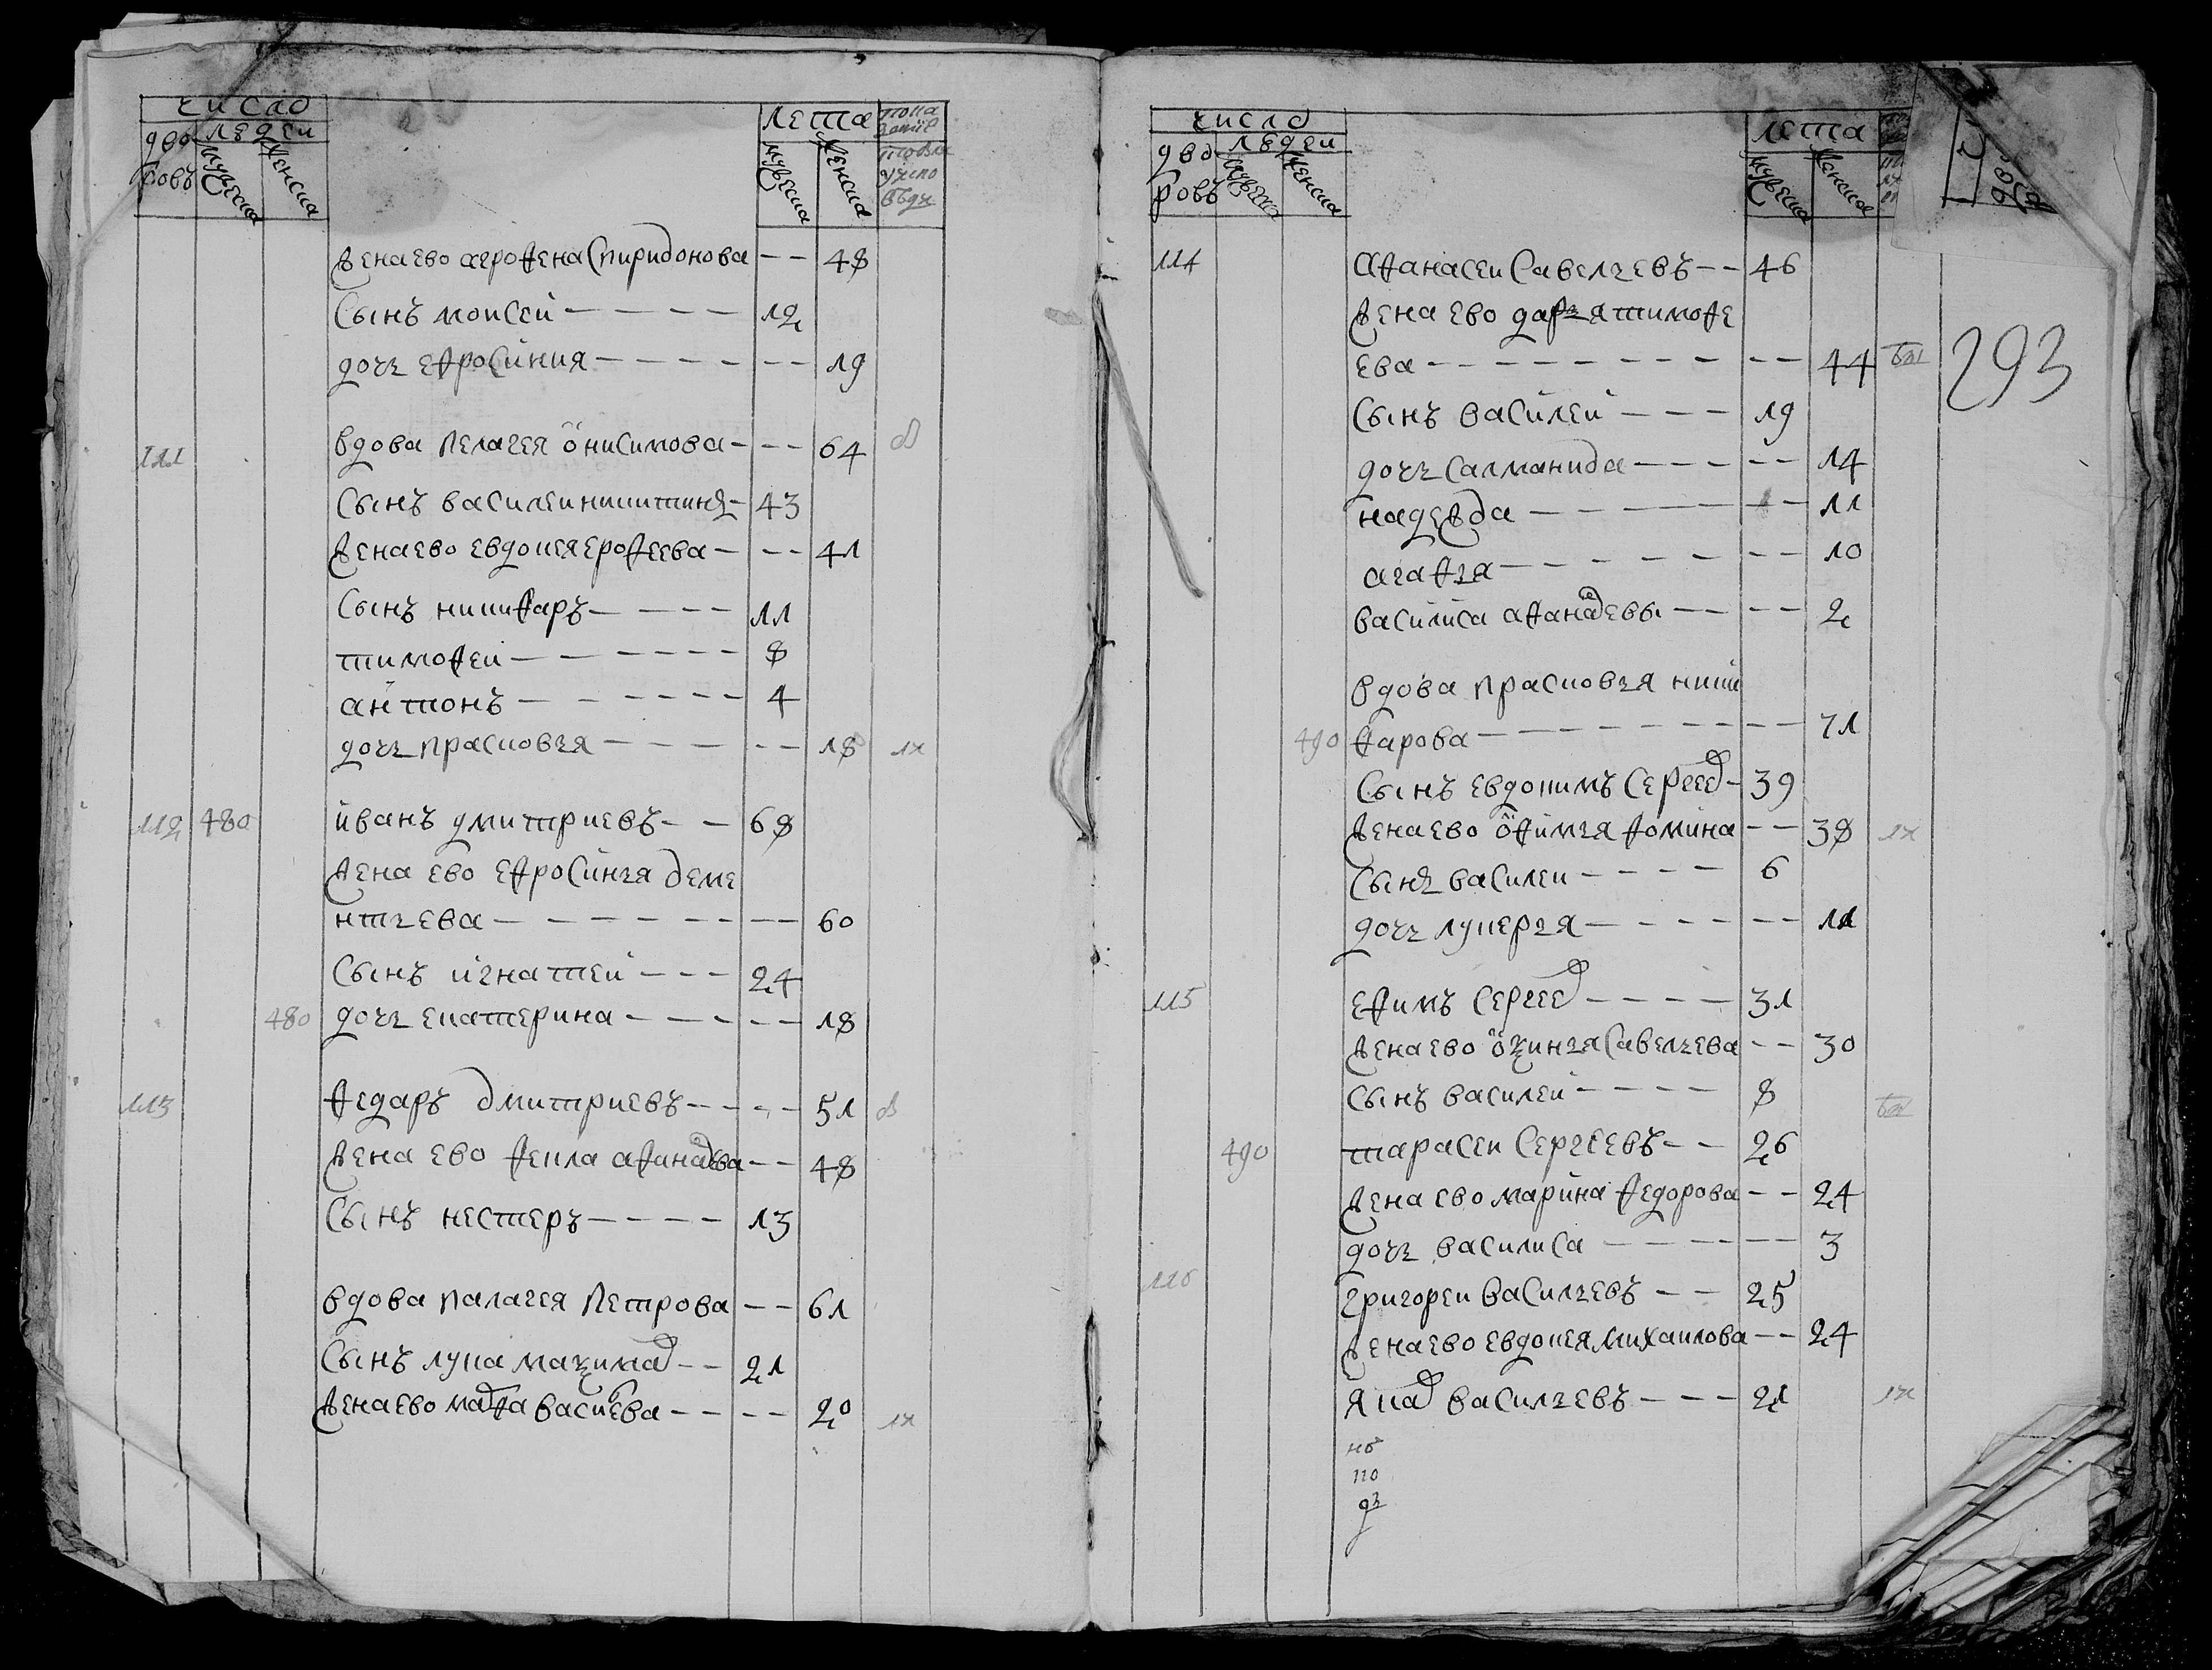 число
лета
дво
людеи
ровъ
мужеска
женска
мужеска
женска
жена ево агрофена Спиридонова - - 48
Сынъ моисеи - - - - 12
дочь ефросиния - - - - - - 19
111 вдова Пелагея онисимова - - - 64
Сынъ василеи никитинъ - 43
жена ево евдокея ерофеева - - - 41
Сынъ никифаръ - - - - 11
тимофеи - - - - - - 8
антонъ - - - - - - 4
дочь прасковья - - - - - - 18
112 480 иванъ дмитриевъ - - 68
жена ево ефросинья деме
нтьева - - - - - - - - 60
Сынъ игнатеи - - - 24
480 дочь екатерина - - - - - - 18
113 федаръ дмитриевъ - - - - 51
жена ево фекла афанасева - - 48
Сынъ нестеръ - - - - 13
вдова палагея Петрова - - 61
Сынъ лука максимов - - 21
жена ево марфа василева - - - - 20
число
лета
дво
людеи
ровъ
мужеска
женска
мужеска
женска
293
114 афанасеи Савельевъ - - 46
жена ево дарья тимофе
ева - - - - - - - - - 44
Сынъ василеи - - - 19
дочь Саламанида - - - - - 14
надежда - - - - - - - 11
агафья - - - - - - - 10
василиса афанасевы - - - - 2
вдова прасковья ники
490 фарова - - - - - - - - - 71
Сынъ евдокимъ Сергеев - 39
жена ево офимья фомина - - 38
Сынъ василеи - - - - 6
дочь лукерья - - - - - - 11
115 ефимъ Сергеев - - - - 31
жена ево оксинья Савельева - - 30
Сынъ василеи - - - - 8
490 тарасеи Сергеевъ - - 26
жена ево марина федорова - - 24
дочь василиса - - - - - - 3
116 григореи васильевъ - - 25
жена ево евдокея михаилова - - 24
яков васильевъ - - - 21